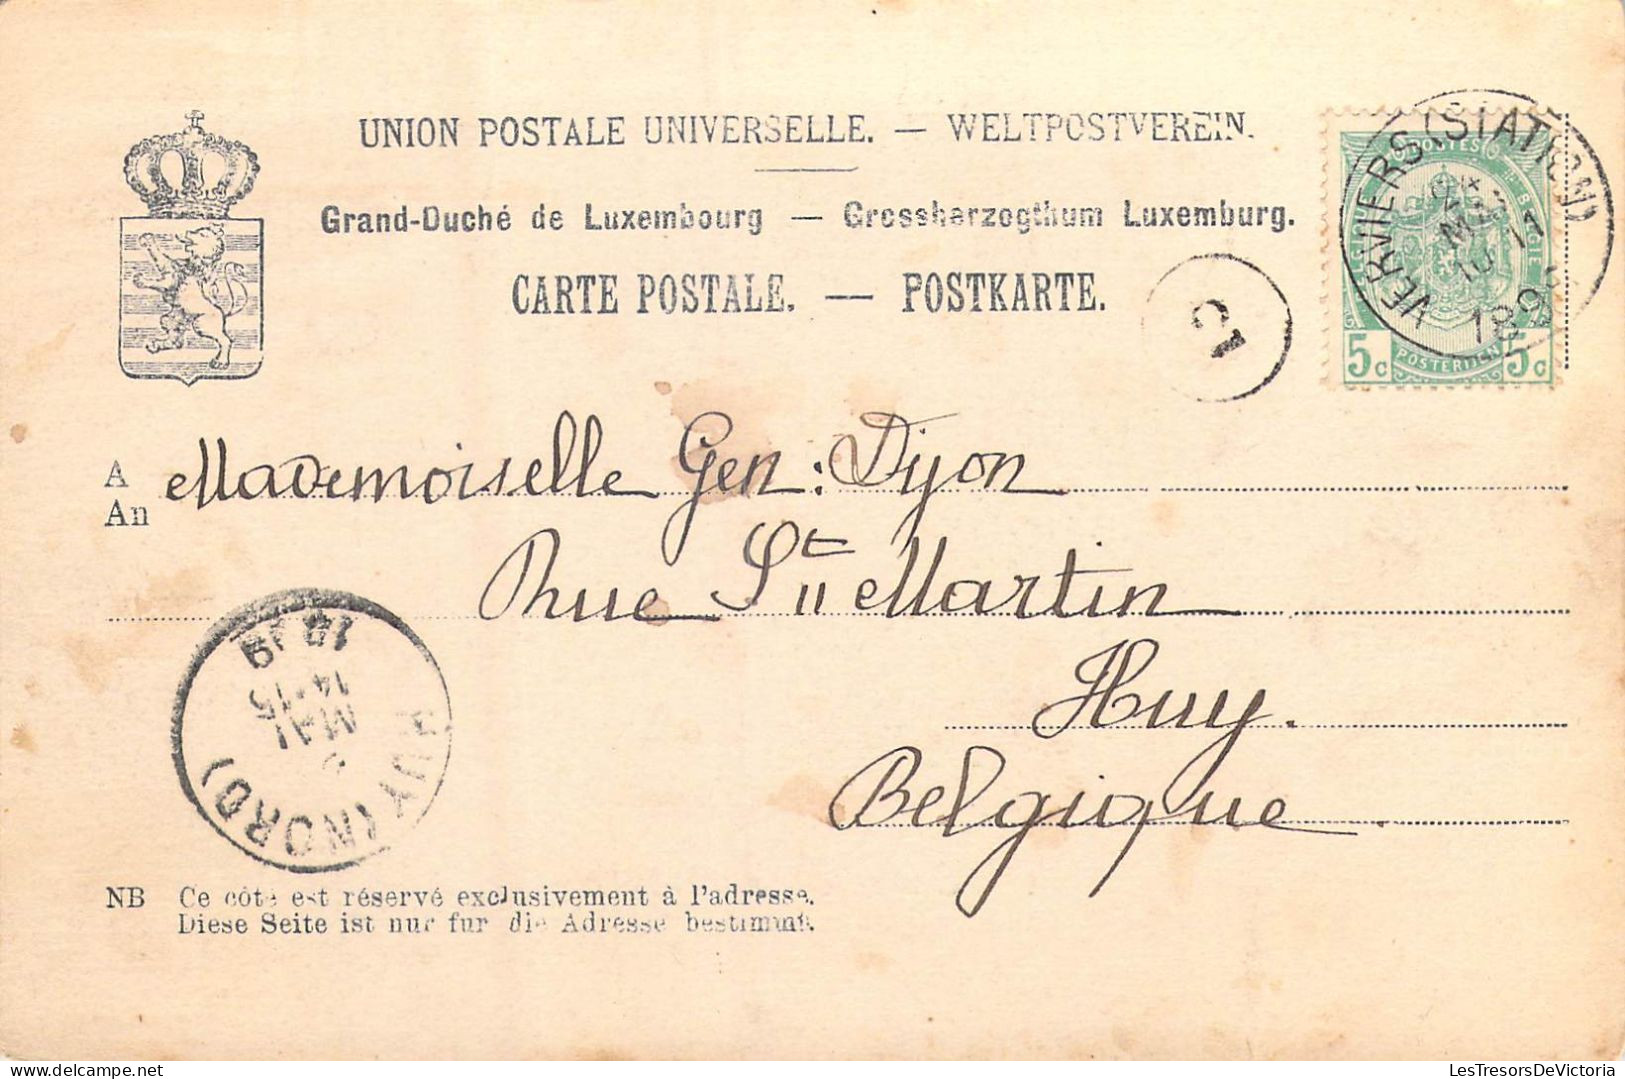 UNION POSTALE UNIVERSELLE. — WELTPOSTVEREIN.
Grand-Duché de Luxembourg — Grossherzogthum Luxemburg.
CARTE POSTALE. — POSTKARTE.
VERVIERS (STATION)
10 11
189
POSTES
BELGIQUE BELGIE
5c POSTERIJEN 5c
12
A Mademoiselle Gen: Dijon
An
Rue St Martin
Huy.
Belgique.
HUY (NORD)
MAI
14-15
NB Ce côté est réservé exclusivement à l'adresse.
Diese Seite ist nur fur die Adresse bestimmt.
LesTresorsDeVictoria